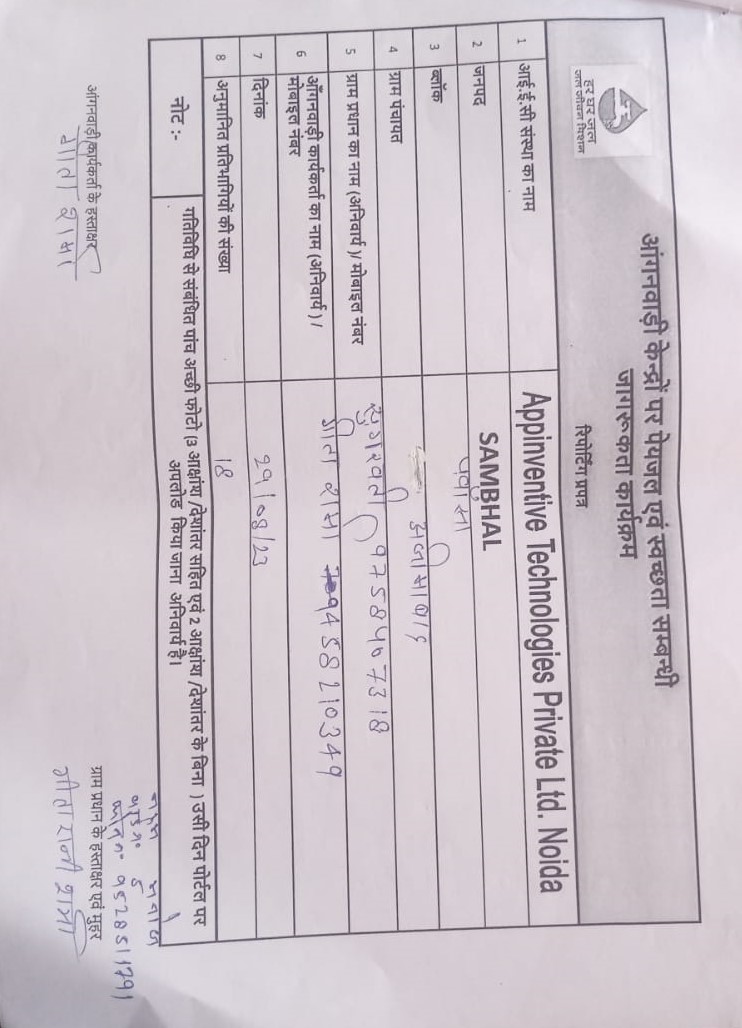 हर घर जल
जल जीवन मिशन
आंगनवाड़ी केन्द्रों पर पेयजल एवं स्वच्छता सम्बन्धी
जागरूकता कार्यक्रम
रिपोर्टिंग प्रपत्र
1 आई.ई.सी संस्था का नाम Appinventive Technologies Private Ltd. Noida
2 जनपद SAMBHAL
3 ब्लॉक पवांसा
4 ग्राम पंचायत
5 ग्राम प्रधान का नाम (अनिवार्य )/ मोबाइल नंबर 9758407318
6 आँगनवाड़ी कार्यकर्ता का नाम (अनिवार्य ) /
मोबाइल नंबर गीता शर्मा 9458210349
7 दिनांक 29/08/23
8 अनुमानित प्रतिभागियों की संख्या 18
नोट :-
गतिविधि से संबंधित पांच अच्छी फोटो (3 आक्षांय /देशांतर सहित एवं 2 आक्षांय /देशांतर के बिना ) उसी दिन पोर्टल पर
अपलोड किया जाना अनिवार्य है।
आंगनवाड़ी कार्यकर्ता के हस्ताक्षर
गीता शर्मा
9528511791
ग्राम प्रधान के हस्ताक्षर एवं मुहर